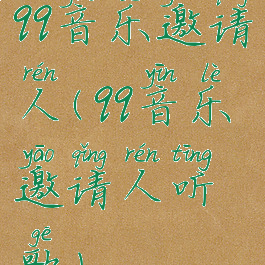 99音乐邀请
rén yīn lè
人(99音乐
yāo qǐng rén tīng
邀请人听
gē
歌)